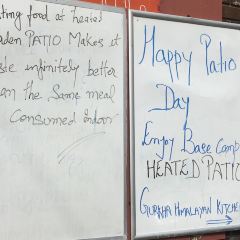 ting food at heated
den PATIO Makes it
te infinitely better
an The Same meal
Consumed indoor
Happy Patio
Day
Enjoy Base Camp
HEATED PATIO
GURKHA HIMALAYAN KITCHE